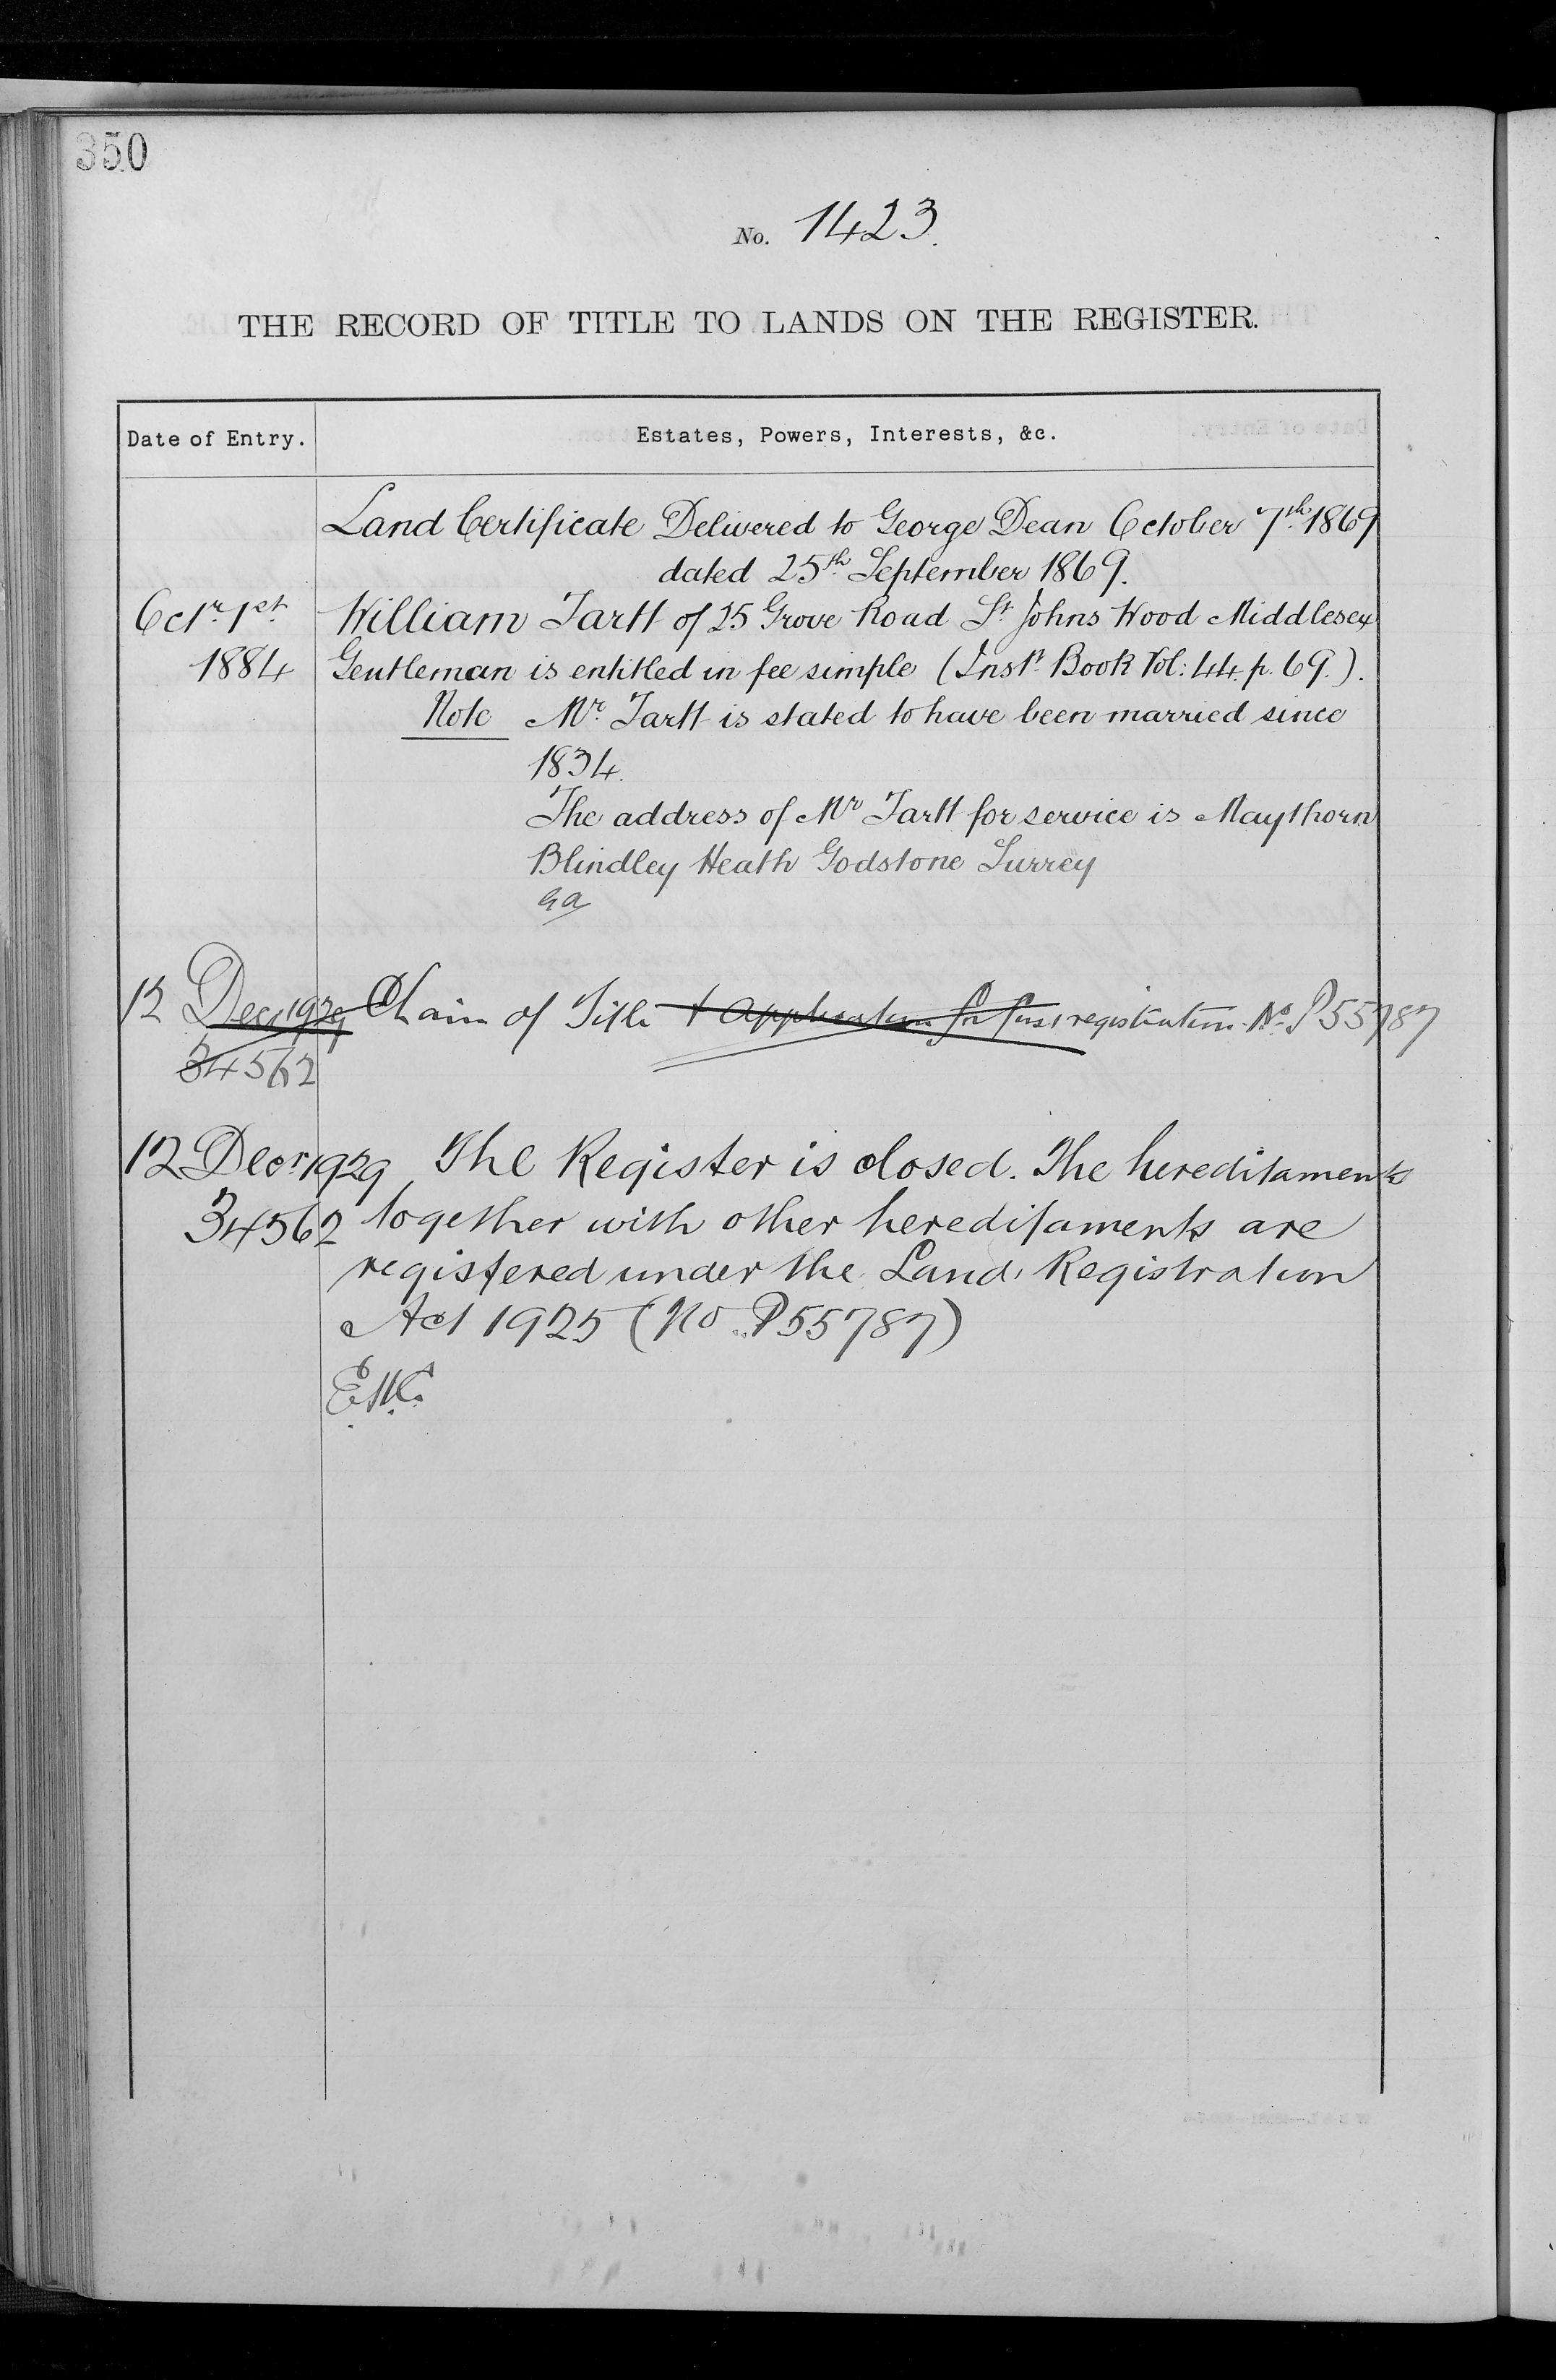 350
No. 1423.
THE RECORD OF TITLE TO LANDS ON THE REGISTER.
Date of Entry. Estates, Powers, Interests, &c.
Land Certificate Delivered to George Dean October 7th 1869
dated 25th September 1869.
Octr. 1st. William Tartt of 25 Grove Road St Johns Wood Middlesex
1884 Gentleman is entitled in fee simple (Inst. Book Vol: 44 p. 69.).
Note Mr. Tartt is stated to have been married since
1834.
The address of Mr Tartt for service is Maythorn
Blindley Heath Godstone Surrey
12 Decr 1929 Chain of Title & application for first registration No. P55787
34562
12 Decr 1929 The Register is closed. The hereditaments
34562 together with other hereditaments are
registered under the Land Registration
Act 1925 (No P55787)